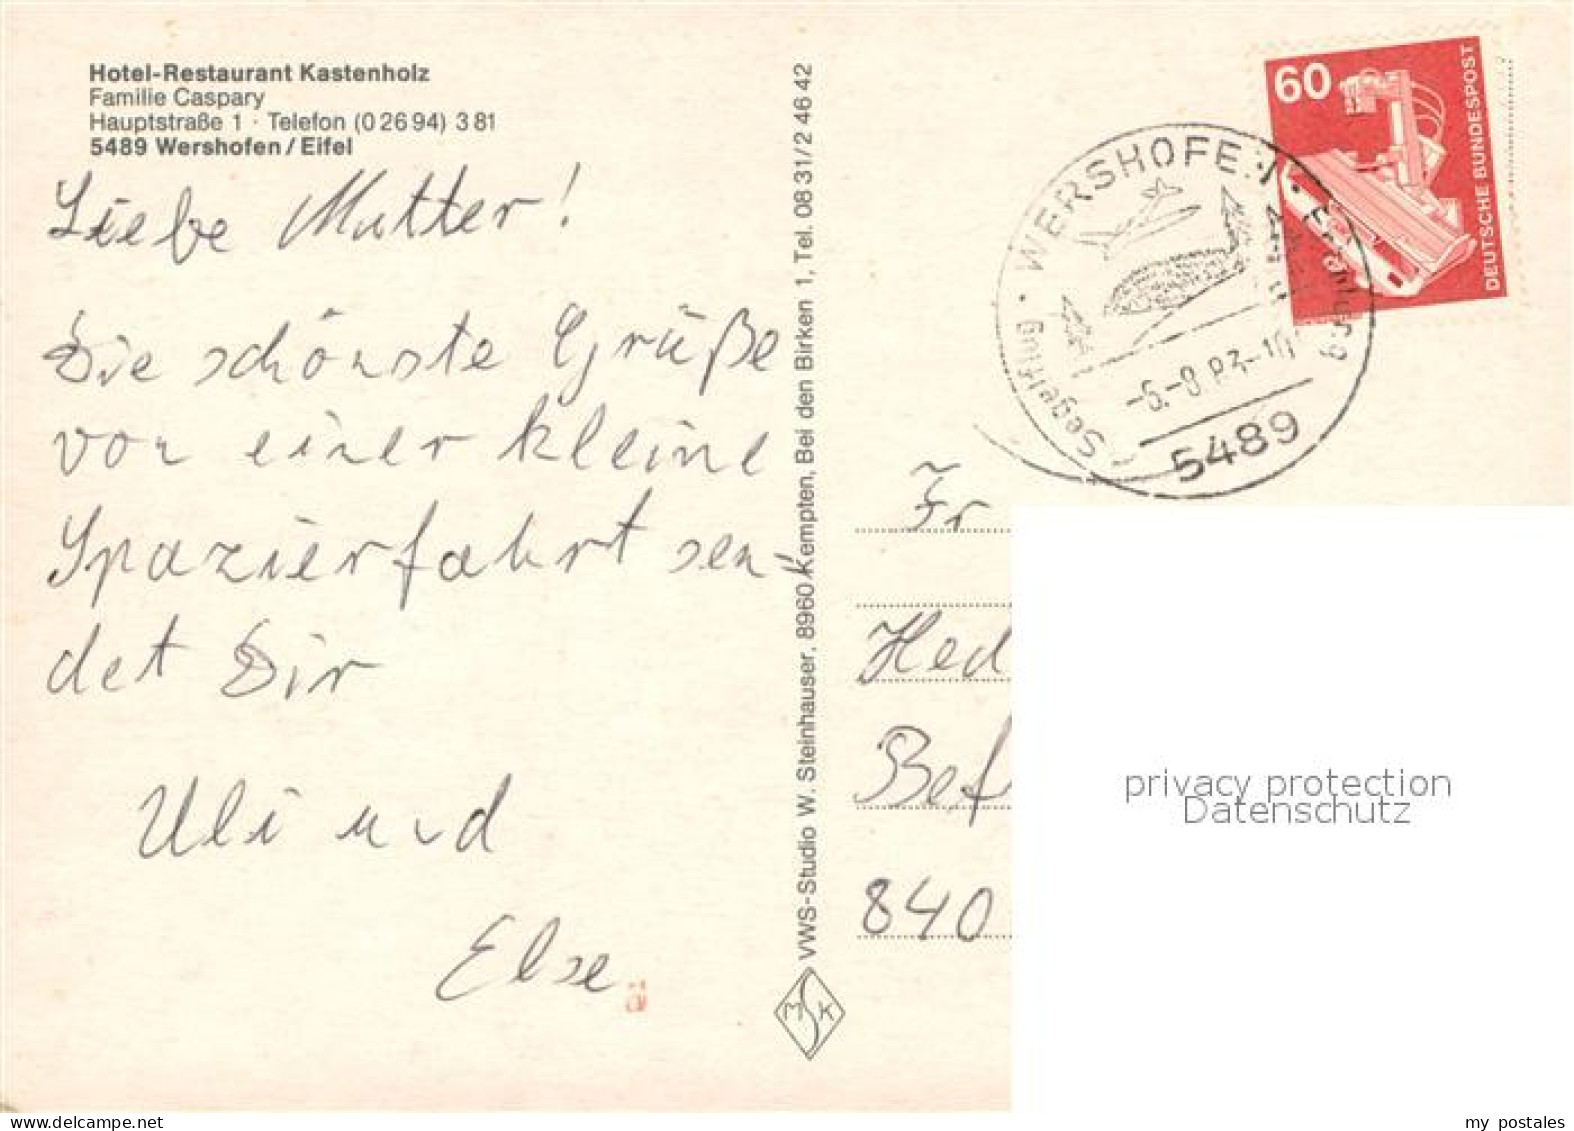 Hotel-Restaurant Kastenholz
Familie Caspary
Hauptstraße 1 · Telefon (0 26 94) 3 81
5489 Wershofen / Eifel
Liebe Mutter!
Die schönste Grüße
von einer kleine
Spazierfahrt sen-
det Dir
Uli und
Else
VWS-Studio W. Steinhauser, 8960 Kempten, Bei den Birken 1, Tel. 08 31/2 46 42
MSK
60
DEUTSCHE BUNDESPOST
· WERSHOFEN ·
Segelflug
-6.-8.83-10
5489
Fr
Hed
Bef
840
privacy protection
Datenschutz
delcampe.net
my postales